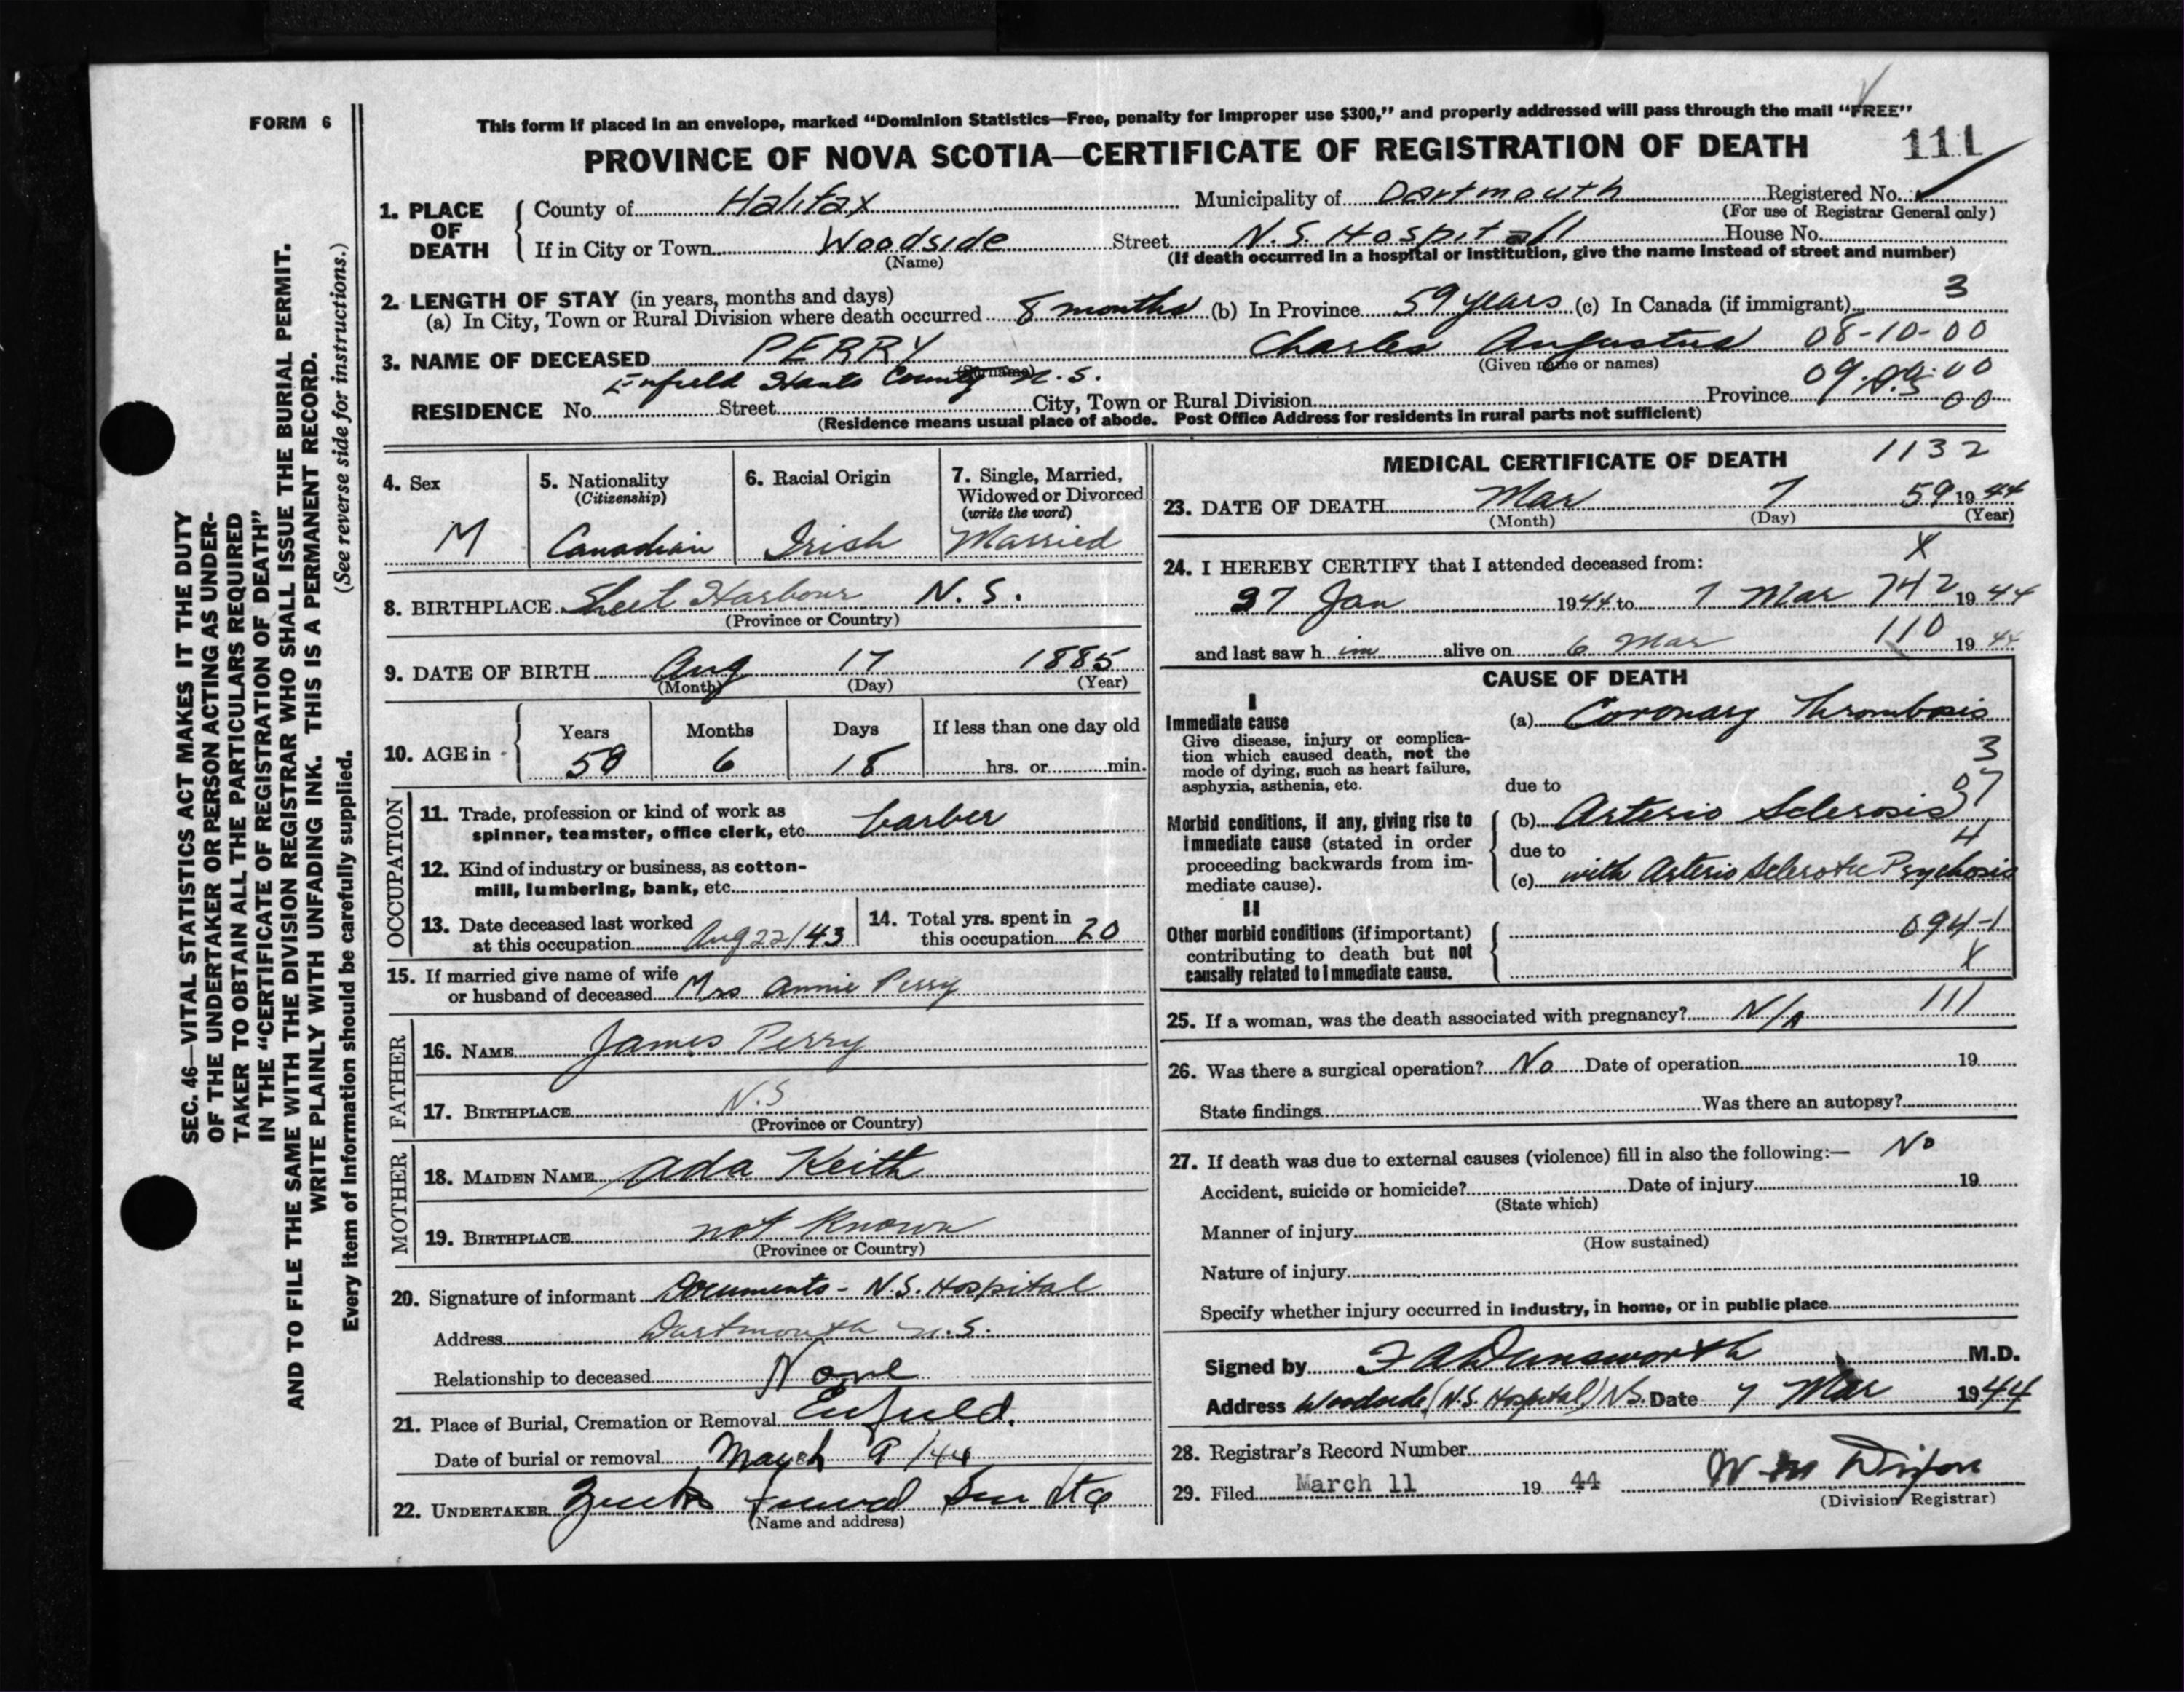 FORM 6
This form if placed in an envelope, marked “Dominion Statistics—Free, penalty for improper use $300,” and properly addressed will pass through the mail “FREE”
PROVINCE OF NOVA SCOTIA—CERTIFICATE OF REGISTRATION OF DEATH 111
SEC. 46—VITAL STATISTICS ACT MAKES IT THE DUTY
OF THE UNDERTAKER OR PERSON ACTING AS UNDER-
TAKER TO OBTAIN ALL THE PARTICULARS REQUIRED
IN THE “CERTIFICATE OF REGISTRATION OF DEATH”
AND TO FILE THE SAME WITH THE DIVISION REGISTRAR WHO SHALL ISSUE THE BURIAL PERMIT.
WRITE PLAINLY WITH UNFADING INK. THIS IS A PERMANENT RECORD.
Every item of information should be carefully supplied. (See reverse side for instructions.)
1. PLACE OF DEATH
County of Halifax Municipality of Dartmouth Registered No.
(For use of Registrar General only)
If in City or Town Woodside Street N.S. Hospital House No.
(Name) (If death occurred in a hospital or institution, give the name instead of street and number)
2. LENGTH OF STAY (in years, months and days)
(a) In City, Town or Rural Division where death occurred 8 months (b) In Province 59 years (c) In Canada (if immigrant) 3
3. NAME OF DECEASED PERRY Charles Augustus 08-10-00
(Surname) (Given name or names)
Enfield Hants County N.S.
RESIDENCE No. Street City, Town or Rural Division Province
(Residence means usual place of abode. Post Office Address for residents in rural parts not sufficient)
4. Sex
M
5. Nationality
(Citizenship)
Canadian
6. Racial Origin
Irish
7. Single, Married,
Widowed or Divorced
(write the word)
Married
8. BIRTHPLACE Sheet Harbour N.S.
(Province or Country)
9. DATE OF BIRTH Aug 17 1885
(Month) (Day) (Year)
10. AGE in
Years Months Days If less than one day old
6 18 hrs. or min.
OCCUPATION
11. Trade, profession or kind of work as
spinner, teamster, office clerk, etc. barber
12. Kind of industry or business, as cotton-
mill, lumbering, bank, etc.
13. Date deceased last worked
at this occupation Aug 22/43
14. Total yrs. spent in
this occupation 20
15. If married give name of wife
or husband of deceased Mrs Annie Perry
FATHER
16. NAME James Perry
17. BIRTHPLACE N.S
(Province or Country)
MOTHER
18. MAIDEN NAME Ada Keith
19. BIRTHPLACE not known
(Province or Country)
20. Signature of informant Documents - N.S. Hospital
Address Dartmouth N.S.
Relationship to deceased None
21. Place of Burial, Cremation or Removal Enfield.
Date of burial or removal March 9/44
22. UNDERTAKER
(Name and address)
MEDICAL CERTIFICATE OF DEATH 1132
23. DATE OF DEATH Mar 7 59 1944
(Month) (Day) (Year)
X
24. I HEREBY CERTIFY that I attended deceased from:
27 Jan 1944 to 7 Mar 742 1944
and last saw him alive on 6 Mar 110 1944
CAUSE OF DEATH
I
Immediate cause (a) Coronary Thrombosis
Give disease, injury or complica-
tion which caused death, not the
mode of dying, such as heart failure,
asphyxia, asthenia, etc.
3
due to 97
Morbid conditions, if any, giving rise to
immediate cause (stated in order
proceeding backwards from im-
mediate cause).
(b) Arterio Sclerosis
due to 4
(c) with Arterio Sclerotic Psychosis
II
Other morbid conditions (if important)
contributing to death but not
causally related to immediate cause.
094-1
X
25. If a woman, was the death associated with pregnancy? N/A 111
26. Was there a surgical operation? No Date of operation 19
State findings Was there an autopsy?
27. If death was due to external causes (violence) fill in also the following:— No
Accident, suicide or homicide? Date of injury 19
(State which)
Manner of injury
(How sustained)
Nature of injury
Specify whether injury occurred in industry, in home, or in public place
Signed by F A Dunsworth M.D.
Address Woodside (N.S. Hospital) N.S. Date 7 Mar 1944
28. Registrar’s Record Number
29. Filed March 11 19 44 W M Dixon
(Division Registrar)